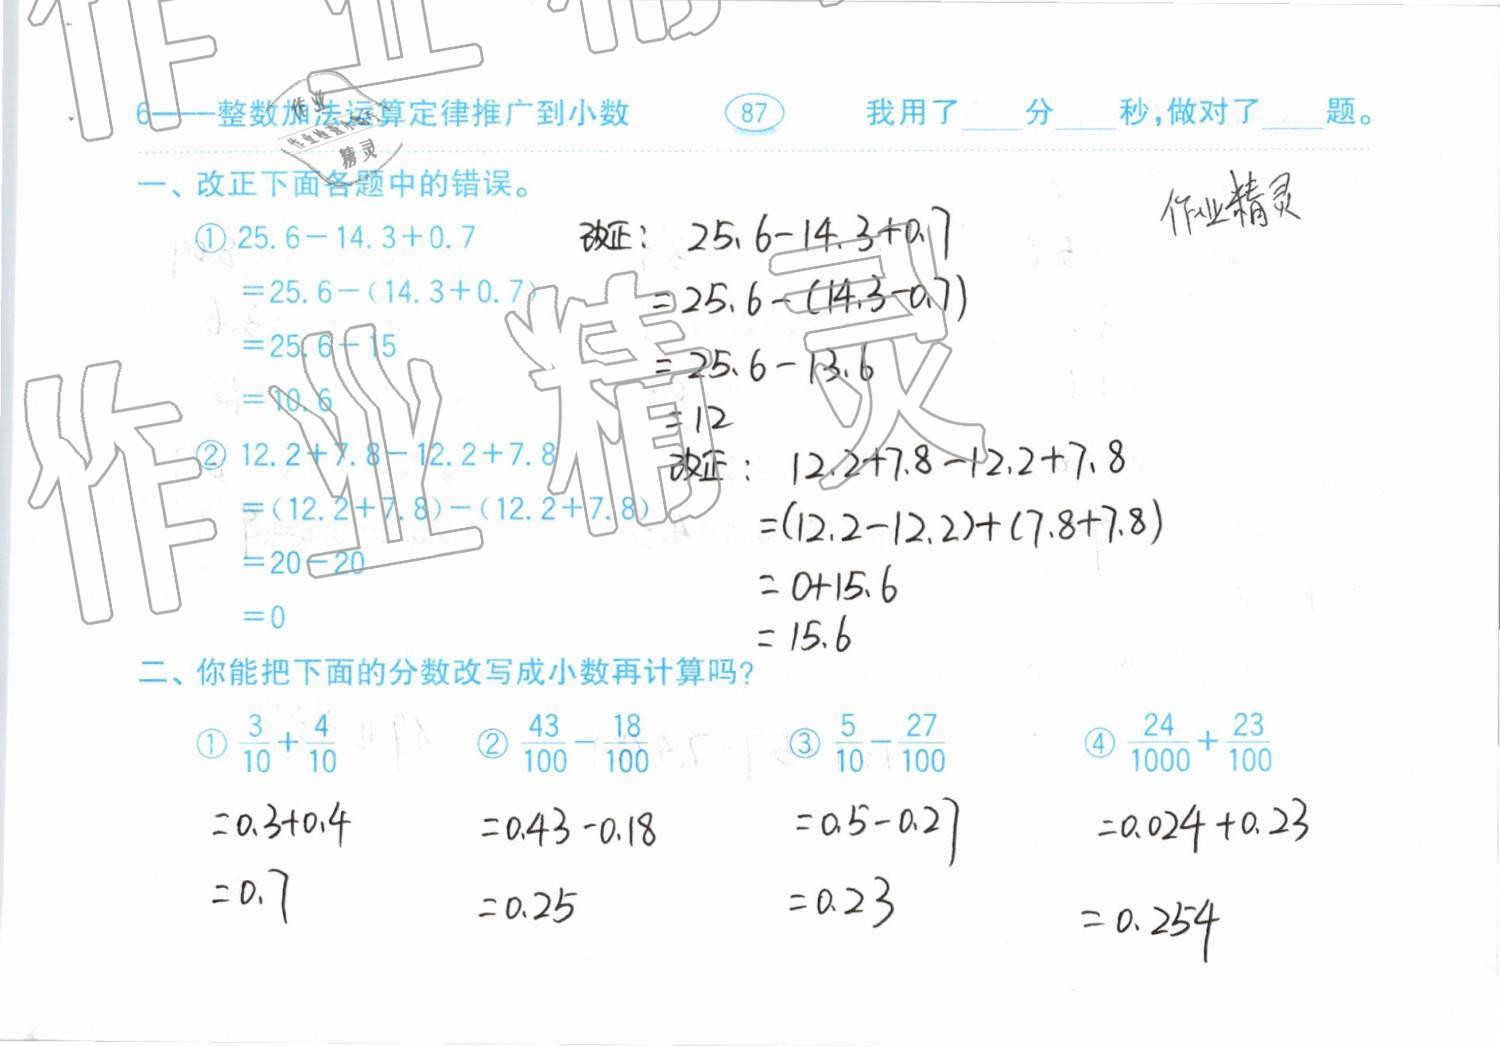 6——整数加法运算定律推广到小数 87 我用了____分____秒,做对了____题。
一、改正下面各题中的错误。
作业精灵
① 25.6-14.3+0.7 改正: 25.6-14.3+0.7
=25.6-(14.3+0.7) =25.6-(14.3-0.7)
=25.6-15 =25.6-13.6
=10.6 =12
② 12.2+7.8-12.2+7.8 改正: 12.2+7.8-12.2+7.8
=(12.2+7.8)-(12.2+7.8) =(12.2-12.2)+(7.8+7.8)
=20-20 =0+15.6
=0 =15.6
二、你能把下面的分数改写成小数再计算吗?
① 3/10+4/10 ② 43/100-18/100 ③ 5/10-27/100 ④ 24/1000+23/100
=0.3+0.4 =0.43-0.18 =0.5-0.27 =0.024+0.23
=0.7 =0.25 =0.23 =0.254
作业精灵
作业
精灵